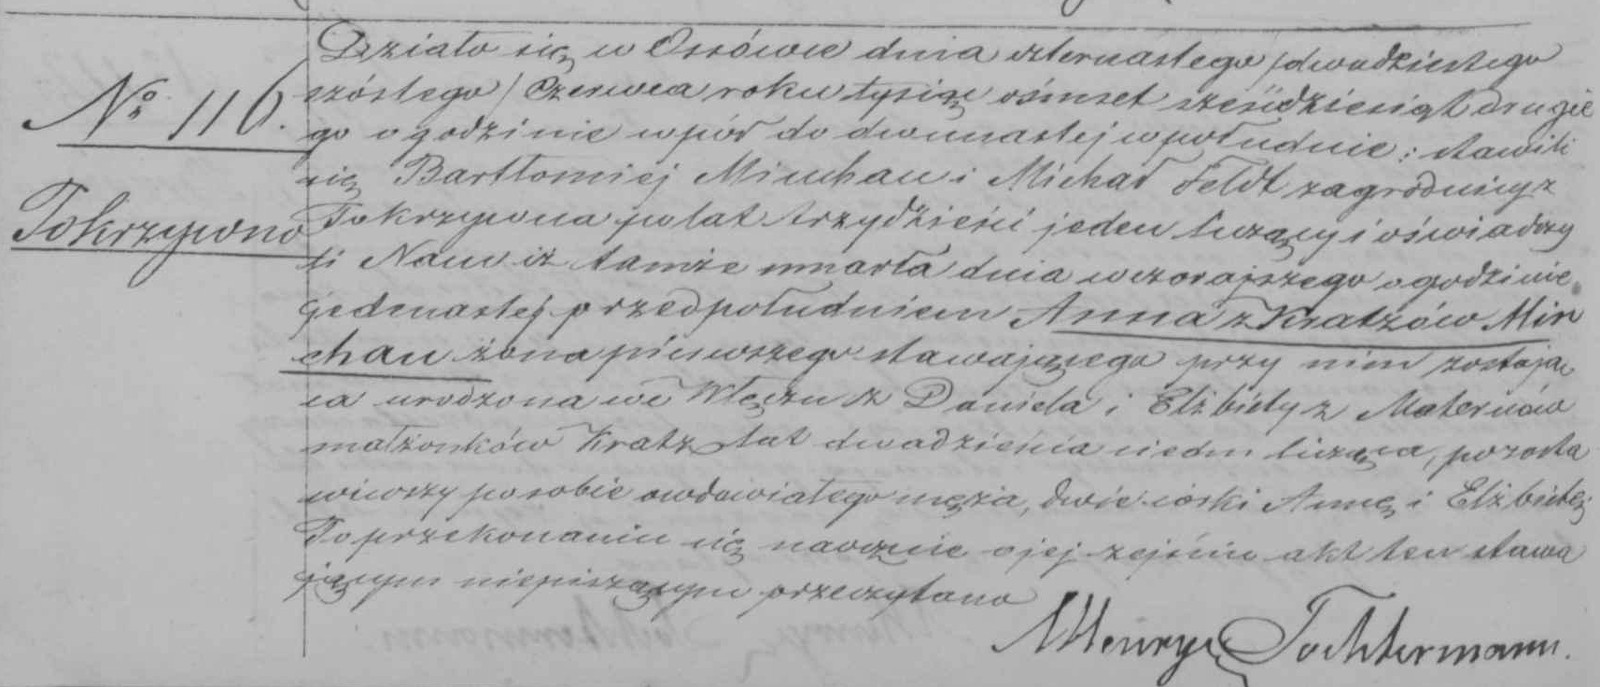 Działo się w Ossówce dnia czternastego /dwudziestego
№ 116. szóstego/ Czerwca roku tysiąc ośmset sześćdziesiąt drugie
go o godzinie wpół do dwunastej w południe; stawili
się Bartłomiej Minchau i Michał Feldt zagrodnicy z
Pokrzywno Pokrzywna po lat trzydzieści jeden liczący i oświadczy
li Nam iż tamże umarła dnia wczorajszego o godzinie
jedenastej przed południem Anna z Kratzów Min
chau żona pierwszego stawającego przy nim zostają
ca urodzona we Włęczu z Daniela i Elżbiety z Maternów
małżonków Kratz lat dwadzieścia siedm licząca, pozosta
wiwszy po sobie owdowiałego męża, dwie córki Annę i Elżbietę;
Po przekonaniu się naocznie o jej zejściu akt ten stawa
jącym niepiszącym przeczytano
Henryc Tochtermann.